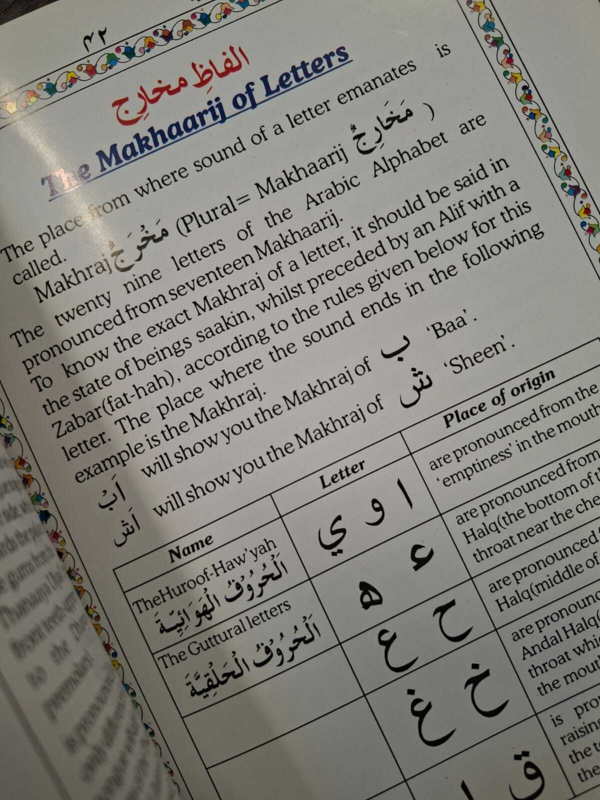 ۴۲
الفاظِ مخارِج
The Makhaarij of Letters
The place from where sound of a letter emanates is
called.
Makhraj مَخْرَجٌ (Plural= Makhaarij مَخَارِجٌ )
The twenty nine letters of the Arabic Alphabet are
pronounced from seventeen Makhaarij.
To know the exact Makhraj of a letter, it should be said in
the state of beings saakin, whilst preceded by an Alif with a
Zabar(fat-hah), according to the rules given below for this
letter. The place where the sound ends in the following
example is the Makhraj.
اَبْ will show you the Makhraj of ب 'Baa'.
اَش will show you the Makhraj of ش 'Sheen'.
Name Letter Place of origin
The Huroof-Haw'yah
اَلْحُرُوْفُ الْهَوَائِيَّة
ا و ي
are pronounced from the
'emptiness' in the mouth
The Guttural letters
اَلْحُرُوْفُ الْحَلْقِيَّة
ء ه
are pronounced from
Halq(the bottom of th
throat near the che
ح ع
are pronounced f
Halq(middle of
خ غ
are pronounc
Andal Halq(
throat whic
the mout
ق
is pron
raising
the to
the